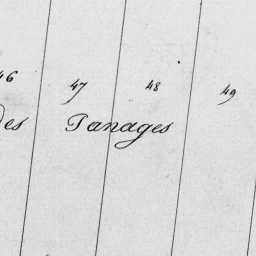 46 47 48 49
Des Tanages